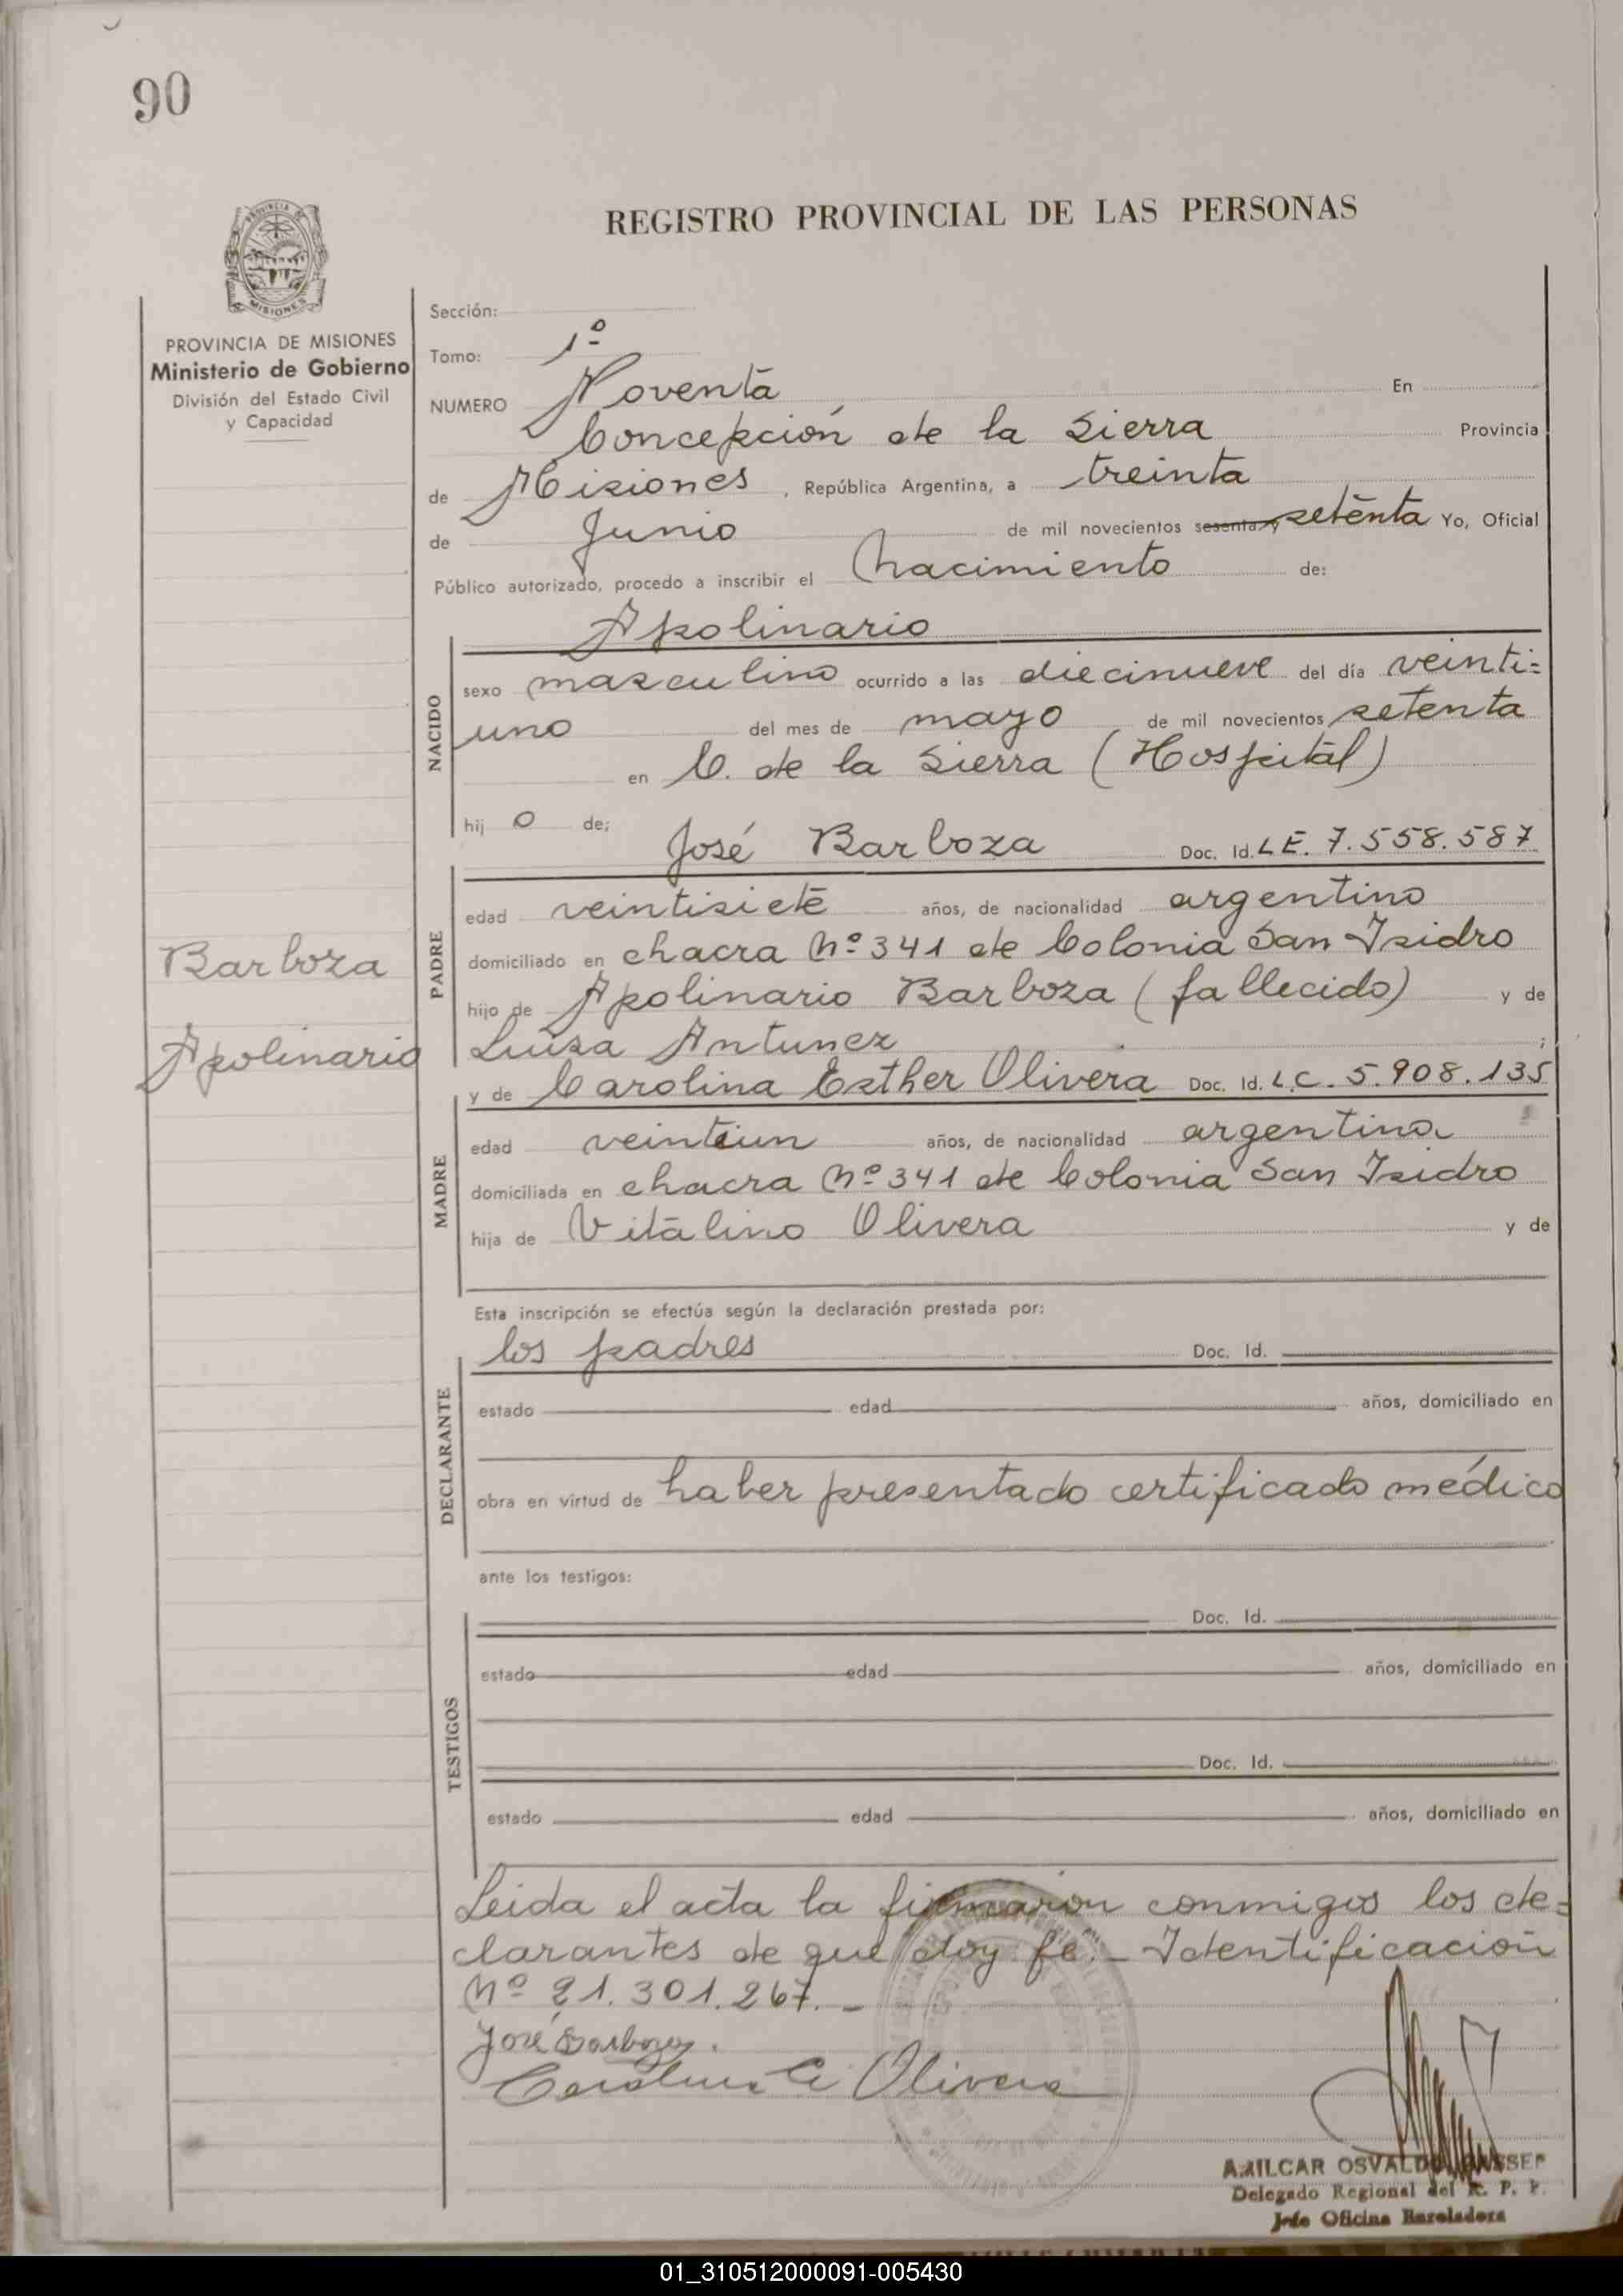 90
REGISTRO PROVINCIAL DE LAS PERSONAS
MISIONES
PROVINCIA DE MISIONES
Ministerio de Gobierno
División del Estado Civil
y Capacidad
Sección:
Tomo: 1º
NUMERO Noventa En
Concepción de la Sierra Provincia
de Misiones, República Argentina, a treinta
de Junio de mil novecientos sesenta y setenta Yo, Oficial
Público autorizado, procedo a inscribir el nacimiento de:
Apolinario
NACIDO
sexo masculino ocurrido a las diecinueve del día veinti=
uno del mes de mayo de mil novecientos setenta
en C. de la Sierra (Hospital)
hij o de;
José Barboza Doc. Id. L.E. 7.558.587
PADRE
edad veintisiete años, de nacionalidad argentino
domiciliado en chacra Nº 341 de Colonia San Isidro
hijo de Apolinario Barboza (fallecido) y de
Luisa Antunez ;
Barboza
Apolinario
y de Carolina Esther Olivera Doc. Id. L.C. 5.908.135
MADRE
edad veintiun años, de nacionalidad argentina
domiciliada en chacra Nº 341 de Colonia San Isidro
hija de Vitalino Olivera y de
Esta inscripción se efectúa según la declaración prestada por:
los padres Doc. Id.
DECLARANTE
estado edad años, domiciliado en
obra en virtud de haber presentado certificado médico
ante los testigos:
Doc. Id.
TESTIGOS
estado edad años, domiciliado en
Doc. Id.
estado edad años, domiciliado en
Leida el acta la firmaron conmigo los de=
clarantes de que doy fe.- Identificación
Nº 21.301.267.-
José Barboza.
Carolina E Olivera
AMILCAR OSVALDO
Delegado Regional del R. P. P.
Jefe Oficina
01_310512000091-005430